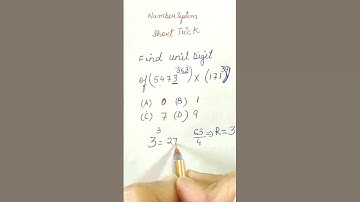 Number System
Short Trick
Find Unit Digit
of (5473^563) × (171^39)
(A) 0 (B) 1
(C) 7 (D) 9
3^3 = 27 63/4 ⇒ R = 3